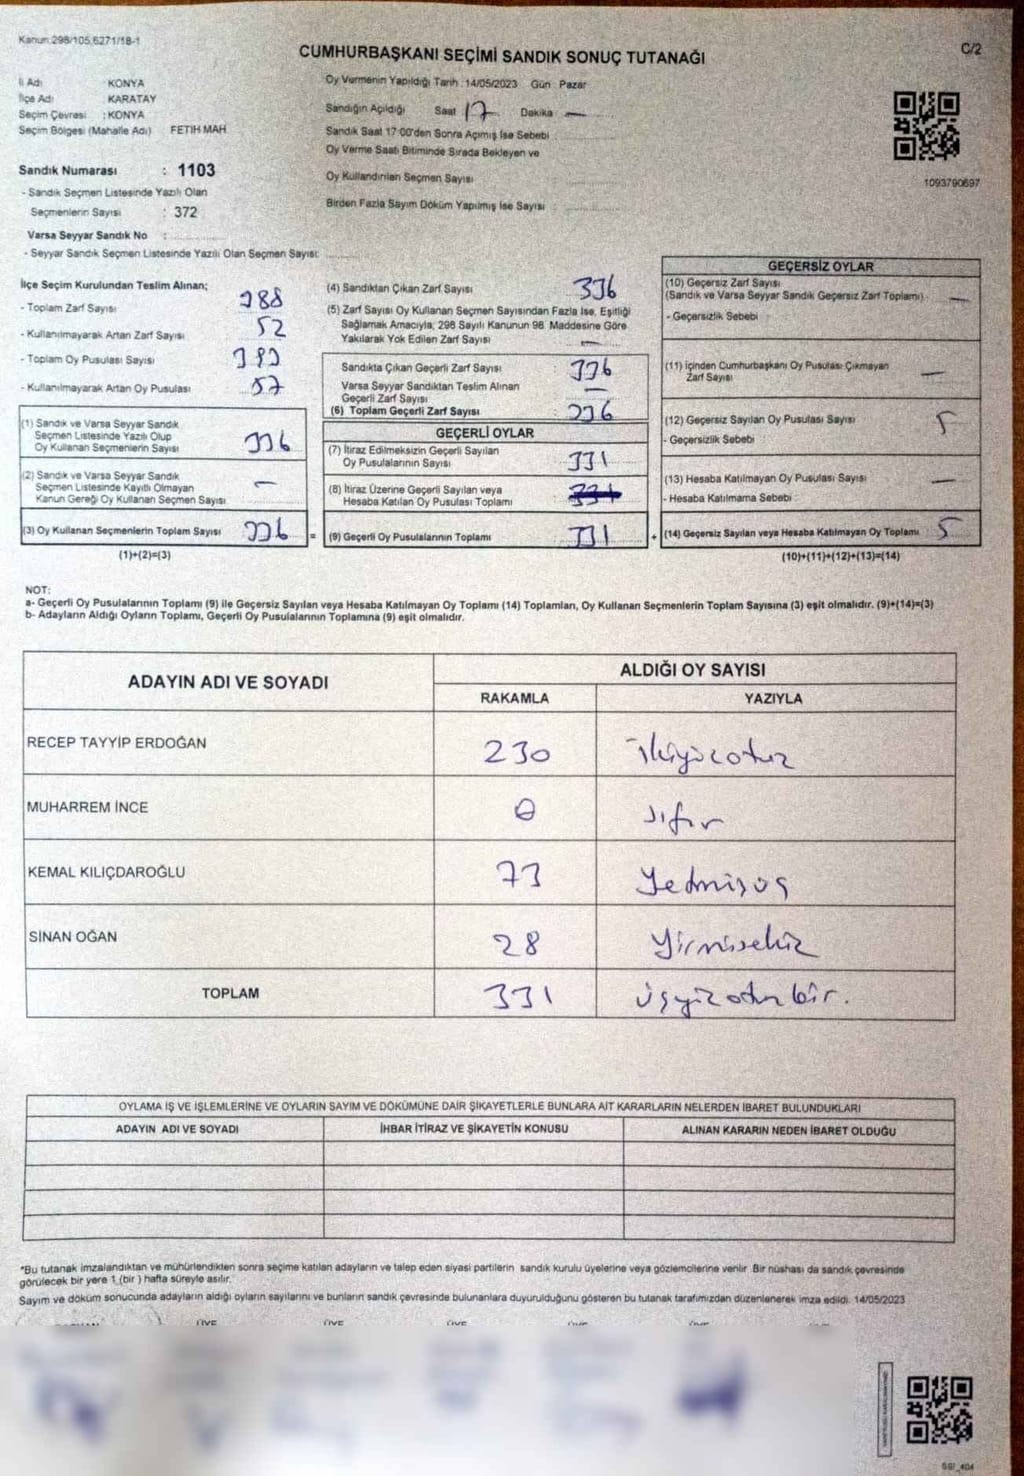 Kanun:298/105,6271/18-1
C/2
CUMHURBAŞKANI SEÇİMİ SANDIK SONUÇ TUTANAĞI
İl Adı KONYA
İlçe Adı KARATAY
Seçim Çevresi : KONYA
Seçim Bölgesi (Mahalle Adı) FETİH MAH
Sandık Numarası : 1103
- Sandık Seçmen Listesinde Yazılı Olan
Seçmenlerin Sayısı : 372
Varsa Seyyar Sandık No :
- Seyyar Sandık Seçmen Listesinde Yazılı Olan Seçmen Sayısı:
Oy Vermenin Yapıldığı Tarih : 14/05/2023 Gün : Pazar
Sandığın Açıldığı Saat 17 Dakika —
Sandık Saat 17:00'den Sonra Açımış İse Sebebi
Oy Verme Saati Bitiminde Sırada Bekleyen ve
Oy Kullandırılan Seçmen Sayısı
Birden Fazla Sayım Döküm Yapılmış İse Sayısı :
1093790697
İlçe Seçim Kurulundan Teslim Alınan;
- Toplam Zarf Sayısı 388
- Kullanılmayarak Artan Zarf Sayısı 52
- Toplam Oy Pusulası Sayısı
- Kullanılmayarak Artan Oy Pusulası
(1) Sandık ve Varsa Seyyar Sandık
Seçmen Listesinde Yazılı Olup
Oy Kullanan Seçmenlerin Sayısı 336
(2) Sandık ve Varsa Seyyar Sandık
Seçmen Listesinde Kayıtlı Olmayan
Kanun Gereği Oy Kullanan Seçmen Sayısı —
(3) Oy Kullanan Seçmenlerin Toplam Sayısı 336 =
(1)+(2)=(3)
(4) Sandıktan Çıkan Zarf Sayısı 336
(5) Zarf Sayısı Oy Kullanan Seçmen Sayısından Fazla İse, Eşitliği
Sağlamak Amacıyla; 298 Sayılı Kanunun 98. Maddesine Göre
Yakılarak Yok Edilen Zarf Sayısı —
Sandıkta Çıkan Geçerli Zarf Sayısı : 336
Varsa Seyyar Sandıktan Teslim Alınan
Geçerli Zarf Sayısı —
(6) Toplam Geçerli Zarf Sayısı : 336
GEÇERLİ OYLAR
(7) İtiraz Edilmeksizin Geçerli Sayılan
Oy Pusulalarının Sayısı : 331
(8) İtiraz Üzerine Geçerli Sayılan veya
Hesaba Katılan Oy Pusulası Toplamı : 331
(9) Geçerli Oy Pusulalarının Toplamı : 331 +
GEÇERSİZ OYLAR
(10) Geçersiz Zarf Sayısı
(Sandık ve Varsa Seyyar Sandık Geçersiz Zarf Toplamı) —
- Geçersizlik Sebebi :
(11) İçinden Cumhurbaşkanı Oy Pusulası Çıkmayan
Zarf Sayısı —
(12) Geçersiz Sayılan Oy Pusulası Sayısı 5
- Geçersizlik Sebebi
(13) Hesaba Katılmayan Oy Pusulası Sayısı —
- Hesaba Katılmama Sebebi
(14) Geçersiz Sayılan veya Hesaba Katılmayan Oy Toplamı 5
(10)+(11)+(12)+(13)=(14)
NOT:
a- Geçerli Oy Pusulalarının Toplamı (9) ile Geçersiz Sayılan veya Hesaba Katılmayan Oy Toplamı (14) Toplamları, Oy Kullanan Seçmenlerin Toplam Sayısına (3) eşit olmalıdır. (9)+(14)=(3)
b- Adayların Aldığı Oyların Toplamı, Geçerli Oy Pusulalarının Toplamına (9) eşit olmalıdır.
ADAYIN ADI VE SOYADI
ALDIĞI OY SAYISI
RAKAMLA YAZIYLA
RECEP TAYYİP ERDOĞAN 230 ikiyüzotuz
MUHARREM İNCE 0 sıfır
KEMAL KILIÇDAROĞLU 73 Yedmişüç
SİNAN OĞAN 28 Yirmisekiz
TOPLAM 331 üçyüzotuzbir.
OYLAMA İŞ VE İŞLEMLERİNE VE OYLARIN SAYIM VE DÖKÜMÜNE DAİR ŞİKAYETLERLE BUNLARA AİT KARARLARIN NELERDEN İBARET BULUNDUKLARI
ADAYIN ADI VE SOYADI İHBAR İTİRAZ VE ŞİKAYETİN KONUSU ALINAN KARARIN NEDEN İBARET OLDUĞU
*Bu tutanak imzalandıktan ve mühürlendikten sonra seçime katılan adayların ve talep eden siyasi partilerin sandık kurulu üyelerine veya gözlemcilerine verilir. Bir nüshası da sandık çevresinde
görülecek bir yere 1 (bir) hafta süreyle asılır.
Sayım ve döküm sonucunda adayların aldığı oyların sayılarını ve bunların sandık çevresinde bulunanlara duyurulduğunu gösteren bu tutanak tarafımızdan düzenlenerek imza edildi. 14/05/2023
ÜYE ÜYE ÜYE